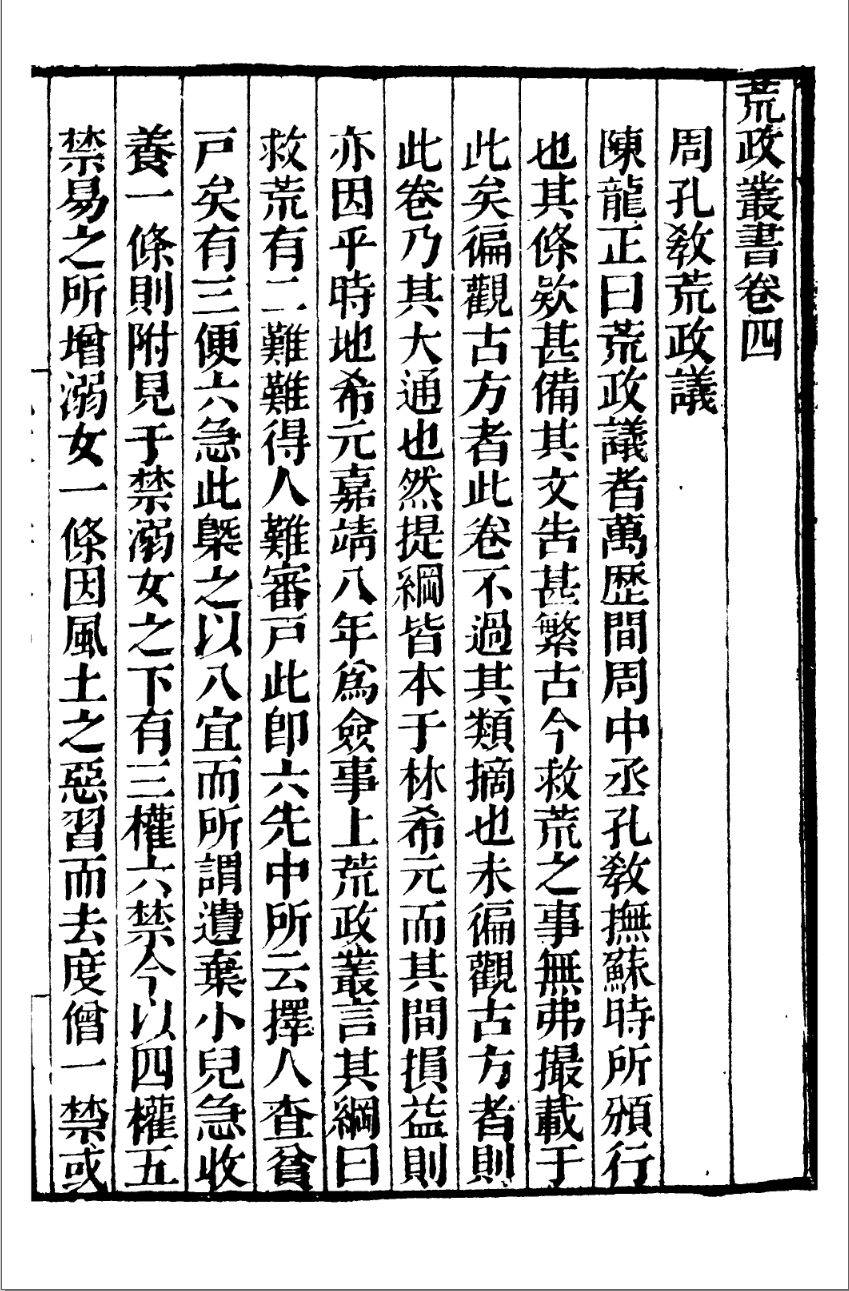 荒政叢書卷四
周孔教荒政議
陳龍正曰荒政議者萬歷間周中丞孔教撫蘇時所頒行
也其條欵甚備其文告甚繁古今救荒之事無弗撮載于
此矣徧觀古方者此卷不過其類摘也未徧觀古方者則
此卷乃其大通也然提綱皆本于林希元而其間損益則
亦因乎時地希元嘉靖八年爲僉事上荒政叢言其綱曰
救荒有二難難得人難審戸此卽六先中所云擇人查貧
戸矣有三便六急此槩之以八宜而所謂遺棄小兒急收
養一條則附見于禁溺女之下有三權六禁今以四權五
禁易之所增溺女一條因風土之惡習而去度僧一禁或